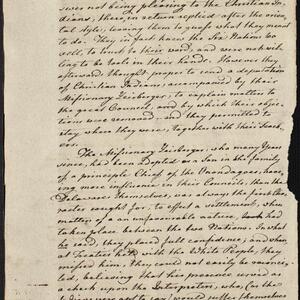 swer not being pleasing to the Christian In-
dians, these, in return replied after the orien-
tal style, leaving them to guess what they meant
to do. They in fact knew the Six Nations too
well, to trust to their word, and were not wil-
ling to be tools in their hands. However they
afterward thought proper to send a deputation
of Christian Indians, accompanied by their
Missionary Zeisberger, to explain matters to
the great Council, and by which their objec-
tions were removed and they permitted to
stay where they were, together with their Teach-
ers.
The Missionary Zeisberger, who many Years
since, had been Adopted as a Son in the family
of a principle Chief of the Onondagoes, hav-
ing more influence in their Councils, than the
Delawares themselves, was always the Ambas-
sador sought for, to effect a settlement, when
matters of an unfavourable nature, had
taken place between the two Nations. In what
he said, they placed full confidence; and when
at Treaties held with the White People, they
prefered him, they could not easily be decei-
ved, believing that his presence served as
a check upon the Interpreters, who, (as the